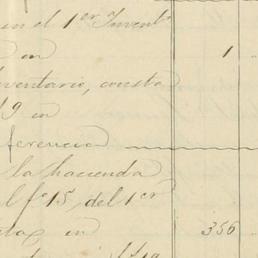 en el 1er Invent
on 1
nventario, consta
19 in
ferencia
la hacienda
l fo 15, del 1er
in 356